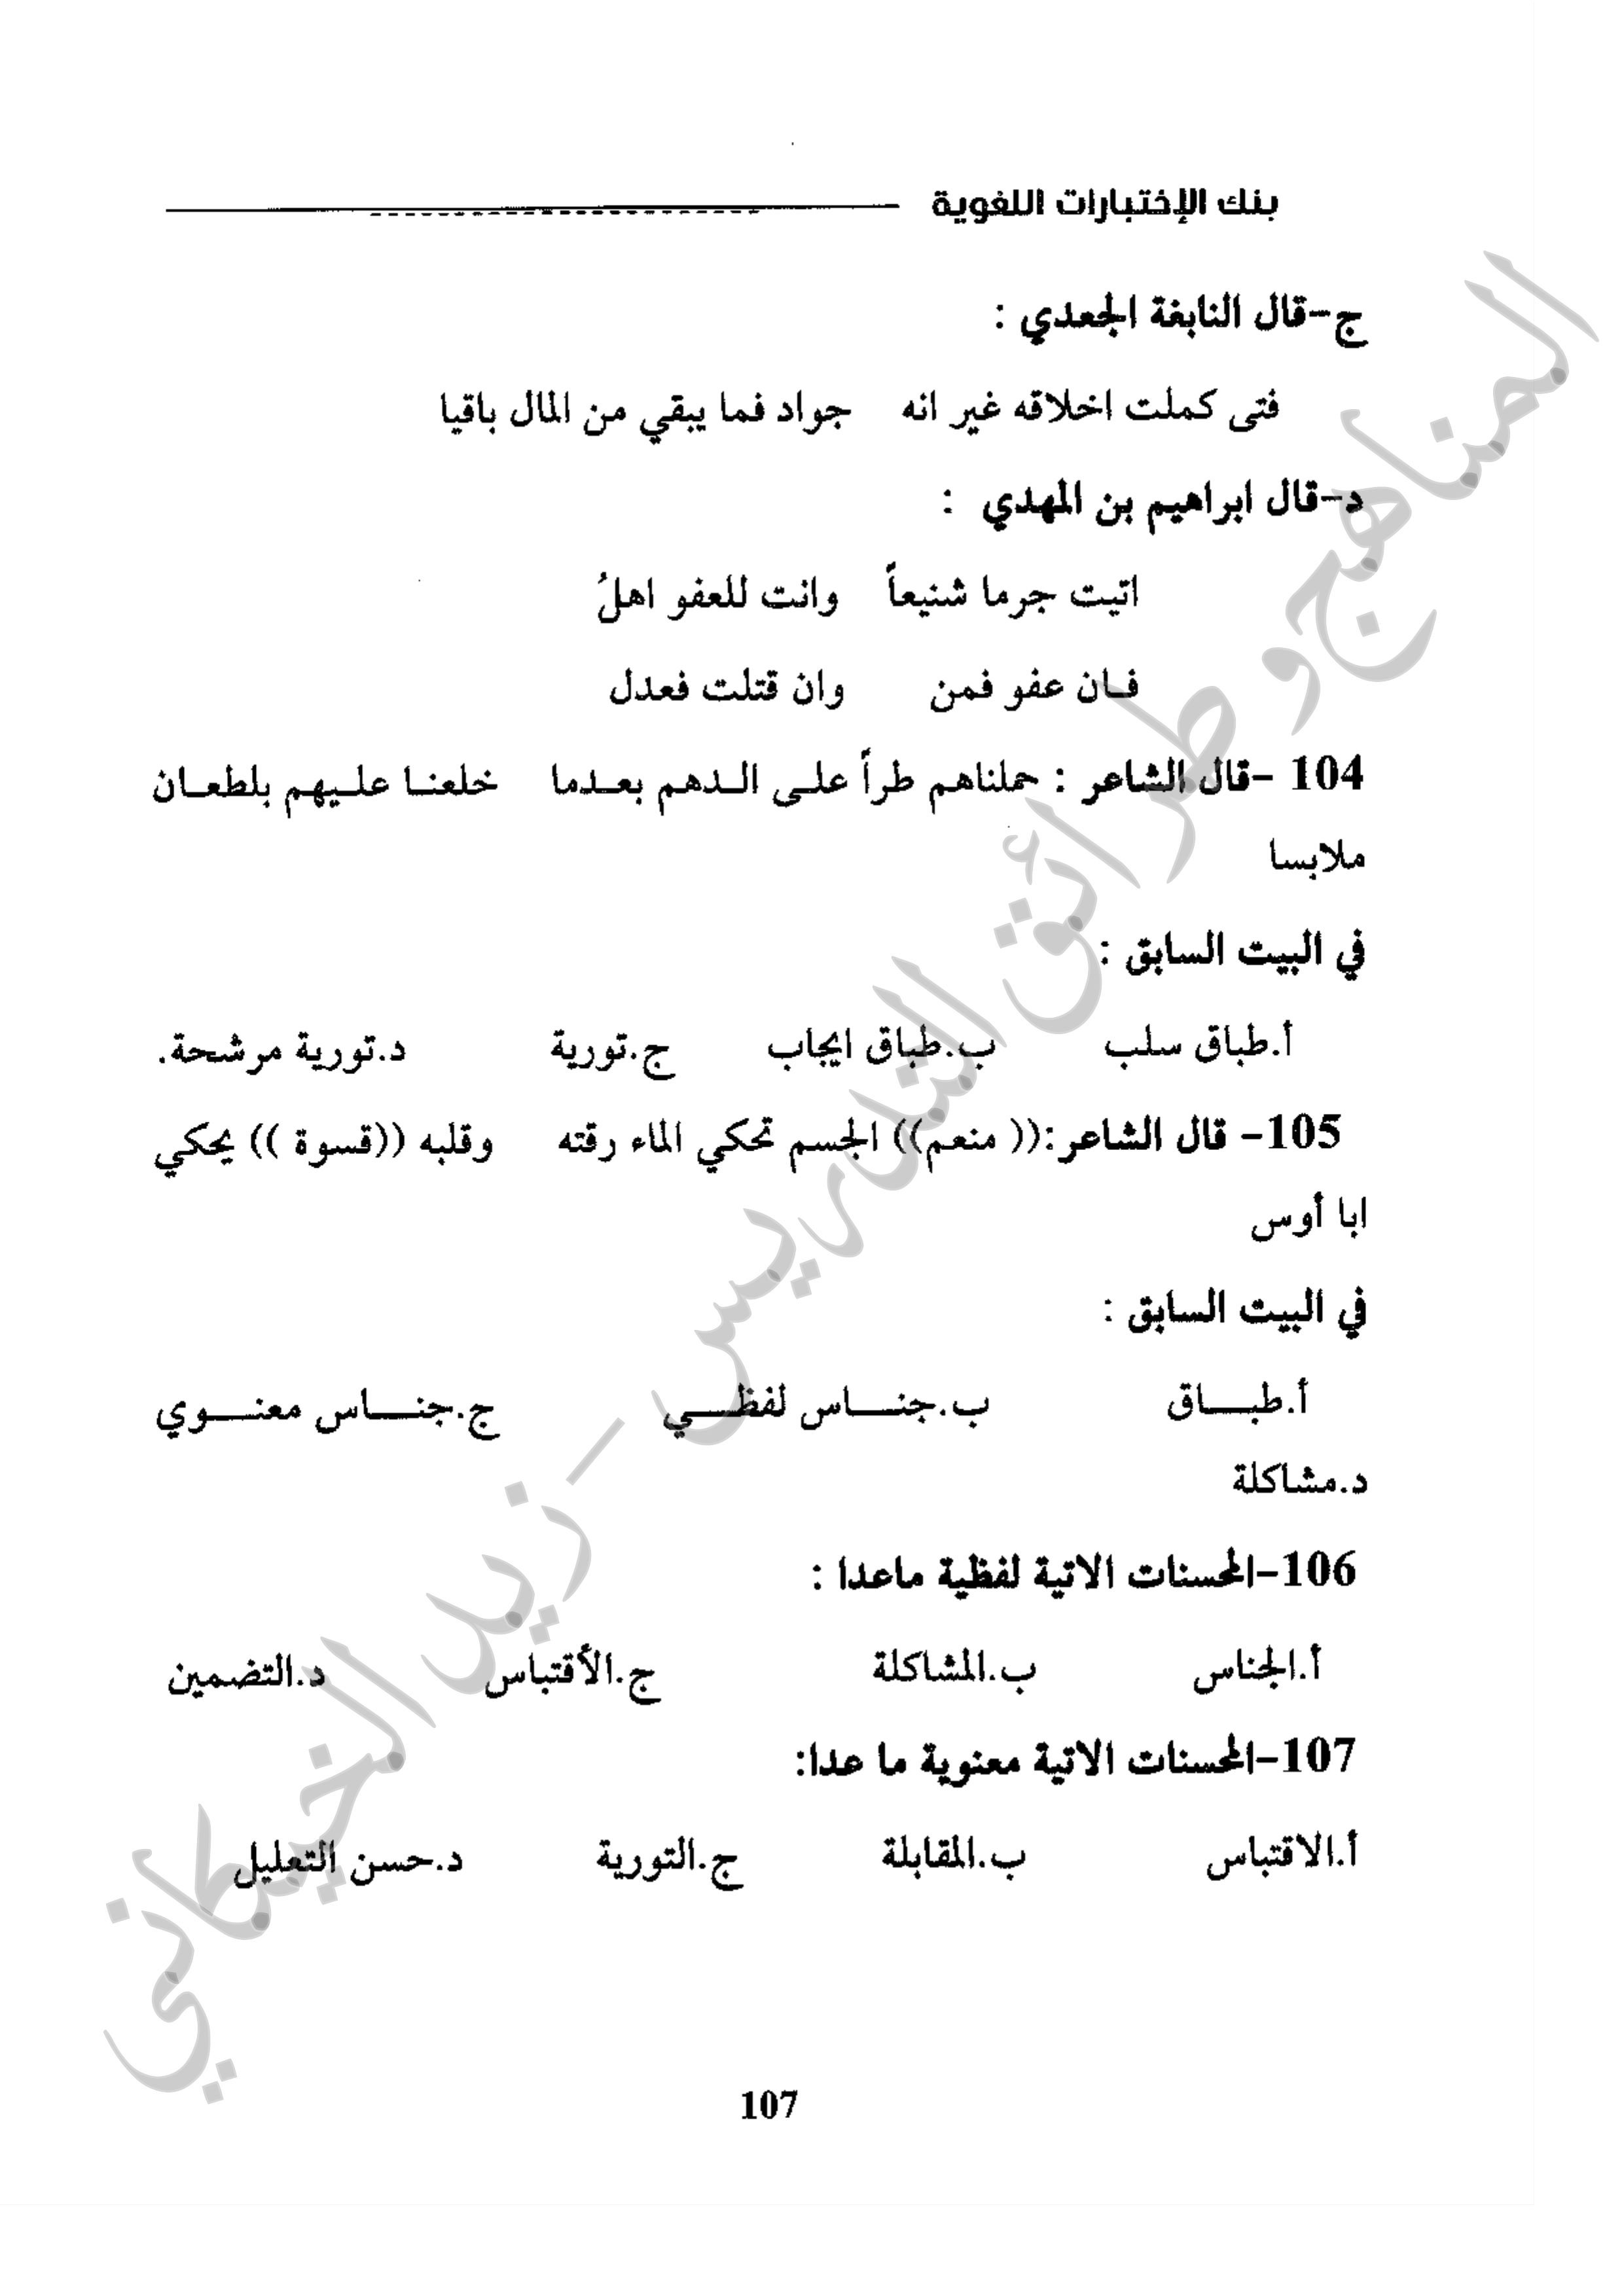 بنك الإختبارات اللغوية
ج-قال النابغة الجعدي :
فتى كملت اخلاقه غير انه جواد فما يبقي من المال باقيا
د-قال ابراهيم بن المهدي :
اتيت جرما شنيعاً وانت للعفو اهلُ
فان عفو فمن وان قتلت فعدل
104 -قال الشاعر : حملناهم طراً على الدهم بعدما خلعنا عليهم بلطعان
ملابسا
في البيت السابق :
أ.طباق سلب ب.طباق ايجاب ج.تورية د.تورية مرشحة.
105- قال الشاعر:(( منعم)) الجسم تحكي الماء رقته وقلبه ((قسوة )) يحكي
ابا أوس
في البيت السابق :
أ.طباق ب.جناس لفظي ج.جناس معنوي
د.مشاكلة
106-المحسنات الاتية لفظية ماعدا :
أ.الجناس ب.المشاكلة ج.الأقتباس د.التضمين
107-المحسنات الاتية معنوية ما عدا:
أ.الاقتباس ب.المقابلة ج.التورية د.حسن التعليل
107
المناهج وطرائق التدريس - زيد الخيكاني